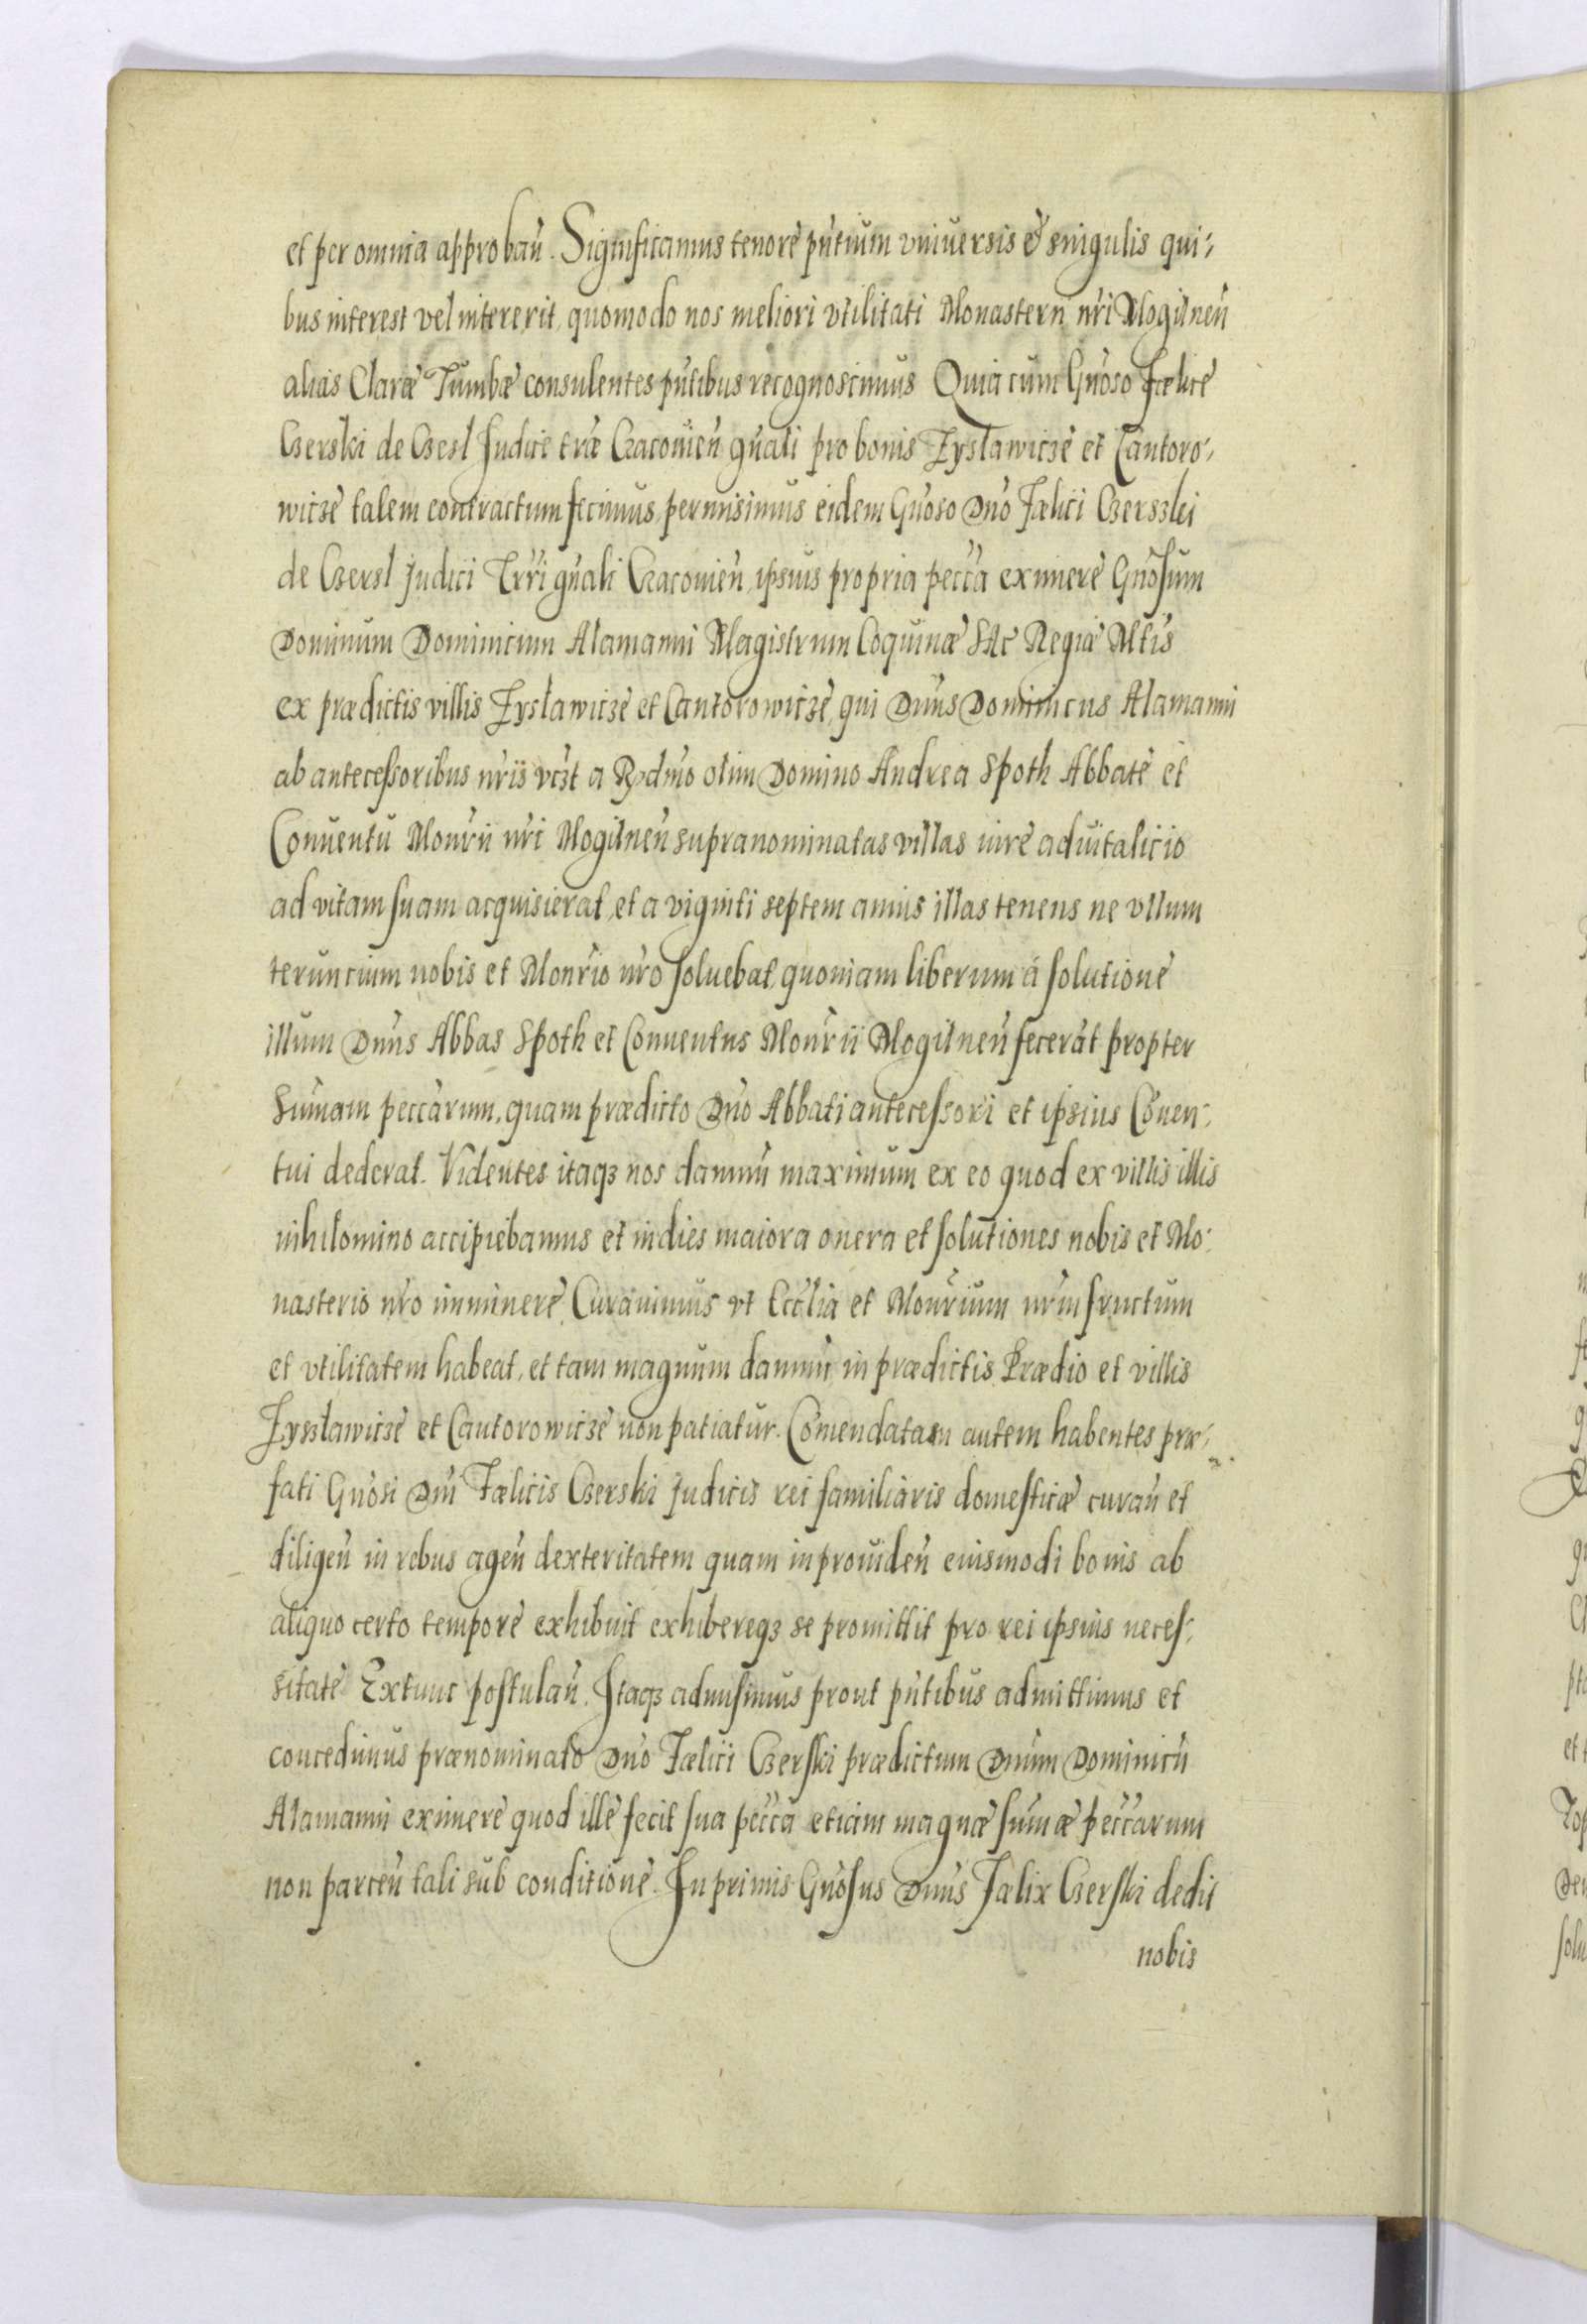 et per omnia approbań. Significamus tenore pńtium vniuersis & singulis qui-
bus interest vel intererit, quomodo nos meliori vtilitati Monasterii nŕi Mogilneń
alias Claræ Tumbæ consulentes pńtibus recognoscimus Quia cum Gńoso Fælice
Czerski de Czesl Judice træ Cracouień gńali pro bonis Zyslawicze et Cantoro-
wicze talem contractum fecimus, permisimus eidem Gńoso Dńo Fælici Czerszki
de Czersl Judici Trri gńali Cracouień, ipsius propria pecća eximere Gńosum
Dominum Dominicum Alamanni Magistrum Coquinæ SAc Regiæ Mtis
ex prædictis villis Zyslawicze et Cantorowicze, qui Dńus Dominicus Alamanni
ab antecessoribus nŕis vczt a Rzdmo olim Domino Andrea Spoth Abbate et
Conuentu Monŕii nŕi Mogilneń supranominatas villas iure aduitalicio
ad vitam suam acquisierat, et a viginti septem annis illas tenens ne vllum
teruncium nobis et Monŕio nŕo soluebat, quoniam liberum á solutione
illum Dńus Abbas Spoth et Conuentus Monŕii Mogilneń fecerát propter
Sumam peccarum, quam prædicto Dńo Abbati antecessori et ipsius Cónen-
tui dederat. Videntes itaqз nos damnú maximum ex eo quod ex villis illis
nihilomino accipiebamus et indies maiora onera et solutiones nobis et Mo-
nasterio nŕo imminere, Curauimus vt Ecclia et Monŕium nŕm fructum
et vtilitatem habeat, et tam magnum damnú in prædictis Prædio et villis
Zyszlawicze et Cantorowicze non patiatur. Cómendatam autem habentes præ-
fati Gńosi Dńi Fælicis Czerski Judicis rei familiáris domesticæ curań et
diligeń in rebus ageń dexteritatem quam in prouideń eiusmodi bonis ab
aliquo certo tempore exhibuit exhibereqз se promittit pro rei ipsius neces-
sitate Extunc postulań. Itaqз admisimus prout pńtibus admittimus et
concedimus prænominato Dńo Fælici Czerski prædictum Dńum Dominicú
Alamanni eximere quod ille fecit sua pecca etiam magnæ sumæ peccarum
non parceń tali sub conditione. In primis Gńosus Dńus Fælix Czerski dedit
nobis